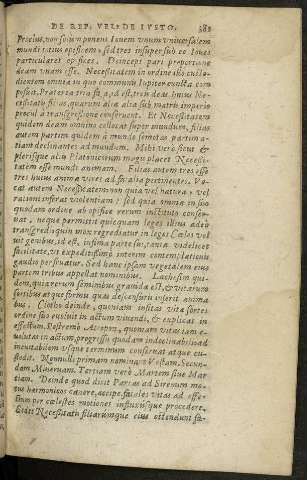 DE REP. VEL, DE IVSTO. 381
Proclus, non solum ponens Iouem vnum vniuersalem
mundi totius opificem, sed tres insuper sub eo Ioues
particulares opifices. Deinceps pari proportione
deam vnam esse. Necessitatem in ordine isto custo-
dientem omnia in quem communis Iuppiter cuncta com
posuit. Præterea tria fila, id est, tres deas huius Ne-
cessitatis filias quarum alia alia sub matris imperio
procul a transgressione conseruent. Et Necessitatem
quidem deam omnino collocat super mundum, filias
autem partim quidem a mundo semotas partim a-
tiam declinantes ad mundum. Mihi vero sicut &
plerisque aliis Platonicorum magis placet Necessi-
tatem esse mundi animam. Filias autem tres esse
tres huius animæ vires ad fata pertinentes. Vo-
cat autem Necessitatem non quia vel natura, vel
rationi inferat violentiam: sed quia omnia in suo
quodam ordine ab opifice rerum instituto conser-
uat, neque permittit quicquam leges illius adeo
transgredi quin mox regrediatur in leges. Cælos vol
uit genibus, id est, infima parte sui, tanta videlicet
facilitate, vt expeditissimo interim contemplationis
gaudio perfruatur. Sed hanc ipsam vegetalem eius
partem tribus appellat nominibus. Lachesim qui-
dem, quatenus seminibus grauida est, & vitarum
sortibus atque formis quas descensuris inserit anima
bus. Clotho deinde, quoniam insitas vitæ sortes
ordine suo euoluit in actum vniendi, & explicat in
effectum. Postremo Atropon, quoniam vitas iam e-
uolutas in actum, progressu quodam indeclinabili ad
metam vsque terminum conseruat atque cu-
stodit. Nonnulli primam nominant Vestam, Secun-
dam Mineruam. Tertiam vero Martem siue Mar-
tiam. Deinde quod dicit Parcas ad Sirenum mo-
tus harmonicos canere, accipe fatales vitas ad effe-
ctum per cælestes motiones influxusque procedere.
Sedes Necessitatis filiarumque eius ostendunt sta-